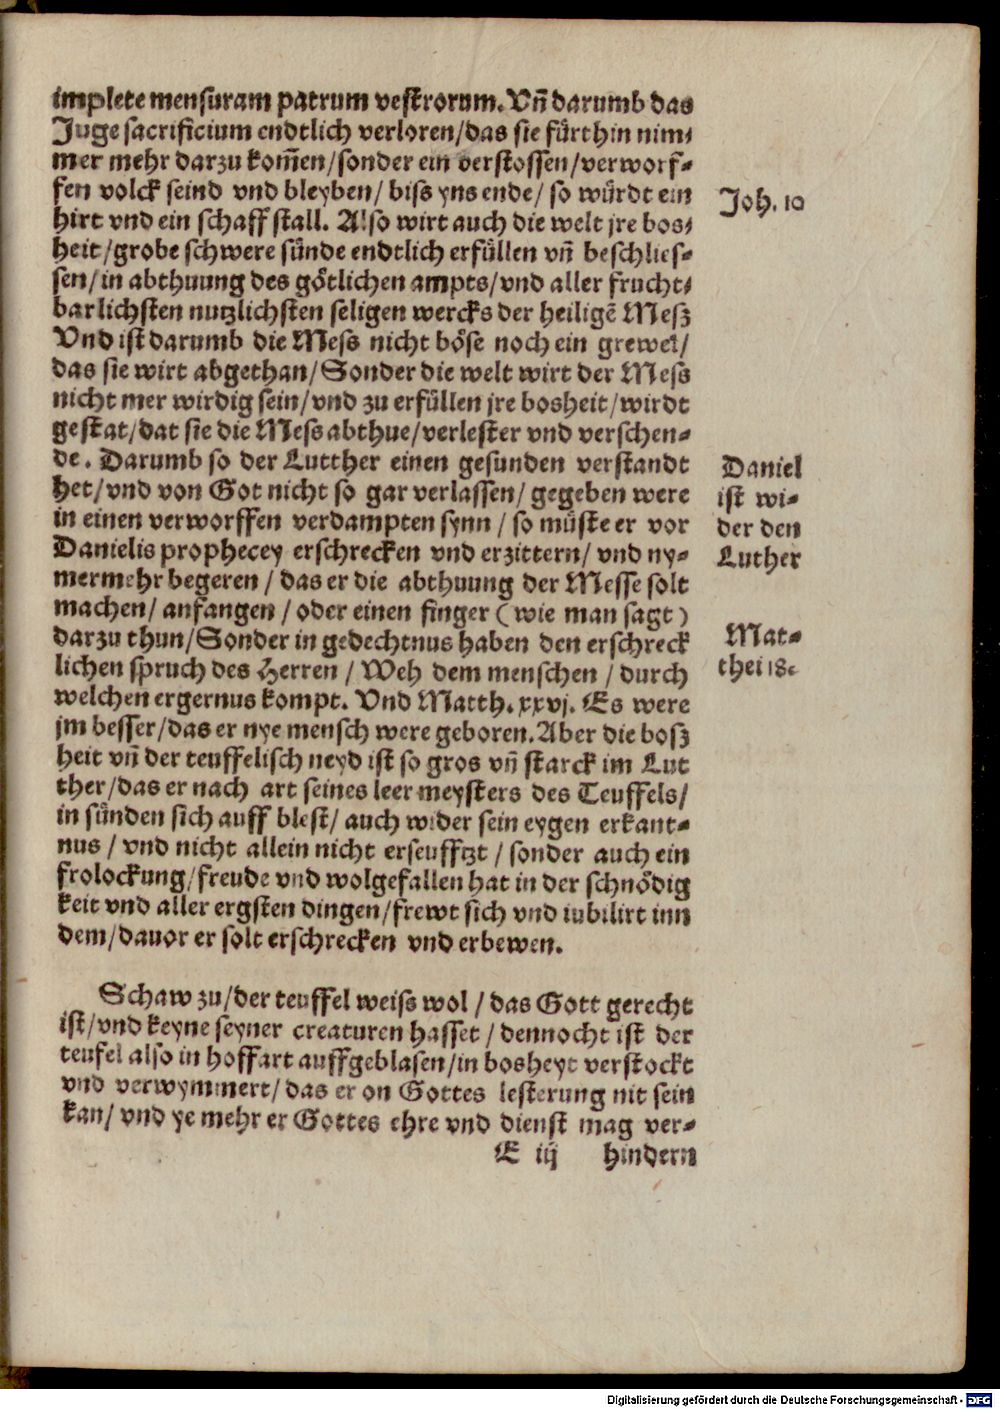 implete mensuram patrum vestrorum. Vñ darumb das
Juge sacrificium endtlich verloren/das sie fürthin nim⸗
mer mehr darzu kom̃en/sonder ein verstossen/verworf⸗
fen volck seind vnd bleyben/ biss yns ende/ so würdt ein
hirt vnd ein schaff stall. Also wirt auch die welt jre bos⸗
heit/grobe schwere sünde endtlich erfüllen vñ beschlies⸗
sen/in abthuung des götlichen ampts/vnd aller frucht⸗
barlichsten nutzlichsten seligen wercks der heiligẽ Mesz
Vnd ist darumb die Mess nicht böse noch ein grewel/
das sie wirt abgethan/Sonder die welt wirt der Mess
nicht mer wirdig sein/vnd zu erfüllen jre bosheit/wirdt
gestat/dat sie die Mess abthue/verlester vnd verschen⸗
de. Darumb so der Lutther einen gesunden verstandt
het/vnd von Got nicht so gar verlassen/ gegeben were
in einen verworffen verdampten synn/ so müste er vor
Danielis prophecey erschrecken vnd erzittern/ vnd ny⸗
mermehr begeren/ das er die abthuung der Messe solt
machen/ anfangen/ oder einen finger (wie man sagt)
darzu thun/Sonder in gedechtnus haben den erschreck
lichen spruch des Herren/ Weh dem menschen/ durch
welchen ergernus kompt. Vnd Matth. xxvj. Es were
jm besser/das er nye mensch were geboren. Aber die bosz
heit vñ der teuffelisch neyd ist so gros vñ starck im Lut
ther/das er nach art seines leermeysters des Teuffels/
in sünden sich auff blest/ auch wider sein eygen erkant⸗
nus/ vnd nicht allein nicht erseufftzt/ sonder auch ein
frolockung/freude vnd wolgefallen hat in der schnödig
keit vnd aller ergsten dingen/frewt sich vnd iubilirt inn
dem/dauor er solt erschrecken vnd erbewen.
Schaw zu/der teuffel weiss wol/ das Gott gerecht
ist/vnd keyne seyner creaturen hasset/ dennocht ist der
teufel also in hoffart auffgeblasen/in bosheyt verstockt
vnd verwymmert/ das er on Gottes lesterung nit sein
kan/ vnd ye mehr er Gottes ehre vnd dienst mag ver⸗
E iij hindern
Joh. 10
Daniel
ist wi⸗
der den
Luther
Mat⸗
thei 18.
Digitalisierung gefördert durch die Deutsche Forschungsgemeinschaft - DFG